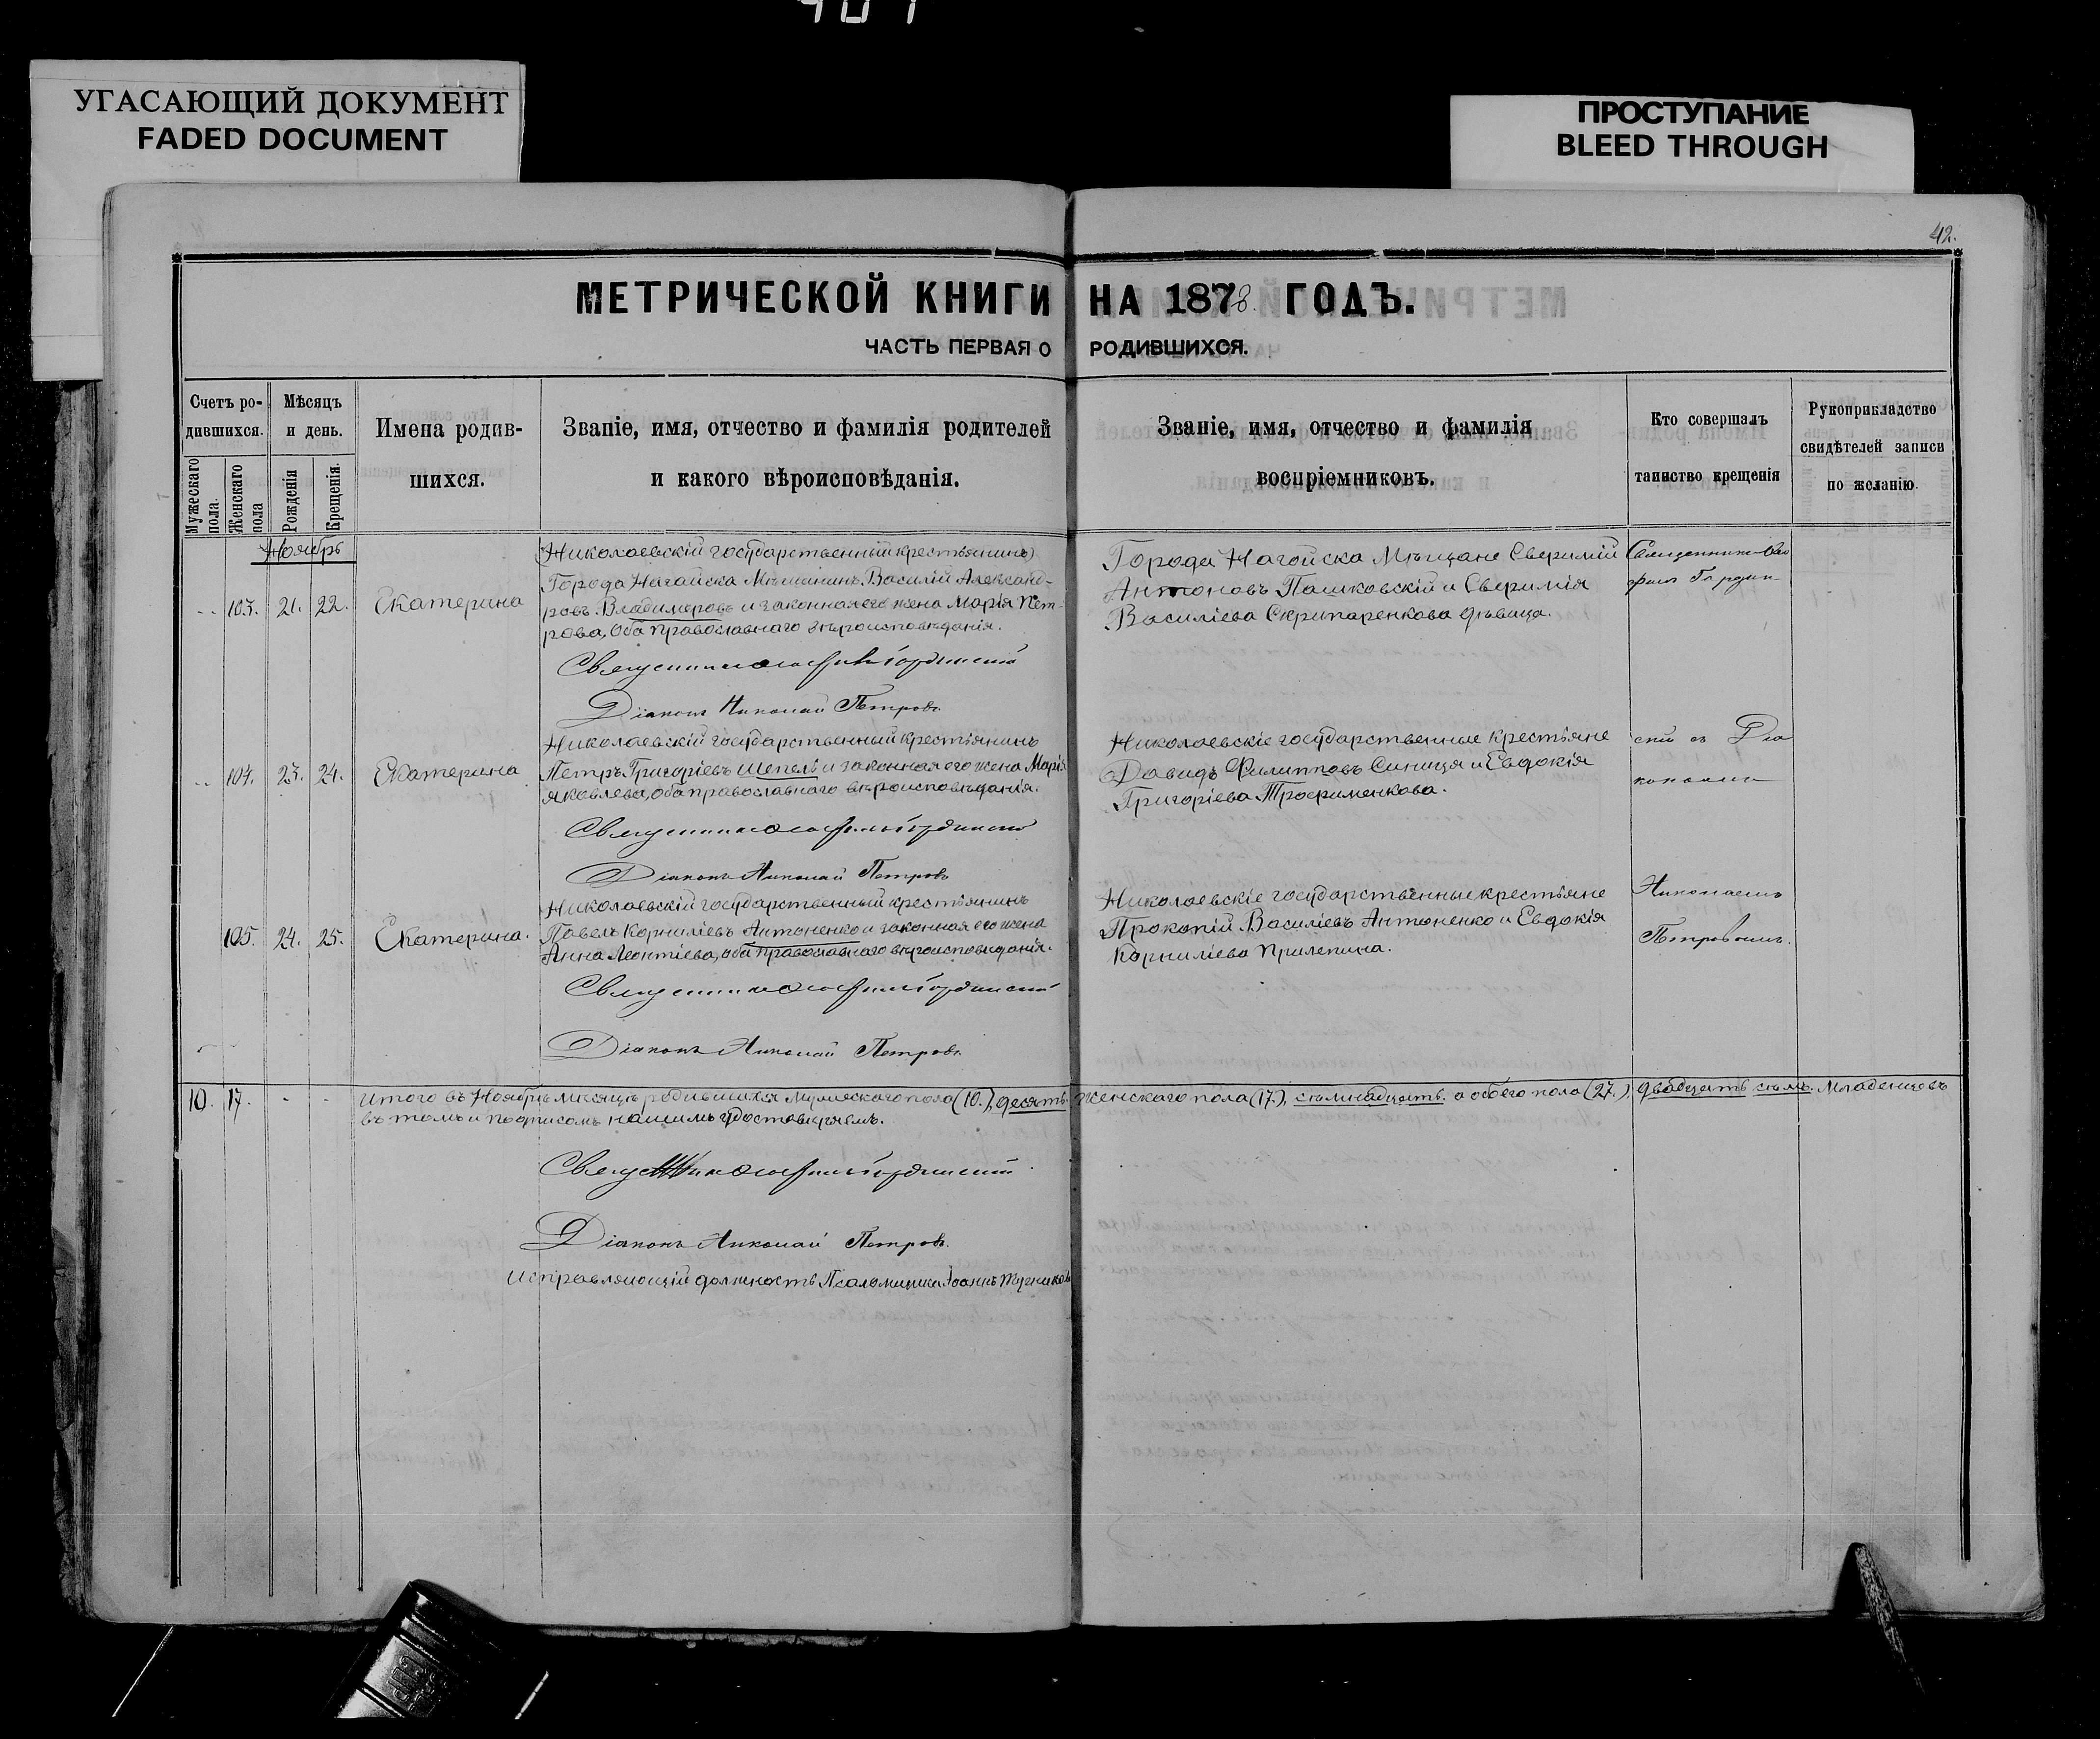 УГАСАЮЩИЙ ДОКУМЕНТ
FADED DOCUMENT
ПРОСТУПАНИЕ
BLEED THROUGH
42.
МЕТРИЧЕСКОЙ КНИГИ НА 1878. ГОДЪ.
ЧАСТЬ ПЕРВАЯ О РОДИВШИХСЯ.
Счетъ ро-
дившихся.
Мужескаго пола.
Женскаго пола
Мѣсяцъ
и день.
Рожденія
Крещенія.
Имена родив-
шихся.
Званіе, имя, отчество и фамилія родителей
и какого вѣроисповѣданія.
Званіе, имя, отчество и фамилія
воспріемниковъ.
Кто совершалъ
таинство крещенія
Рукоприкладство
свидѣтелей записи
по желанію.
Ноябрь
103. 21. 22. Екатерина
(Николаевскій государственный крестьянинъ)
Города Нагайска Мѣщанинъ Василій Александ-
ровъ Владимеровъ и законная его жена Марія Пет-
рова, оба православнаго вѣроисповѣданія.
Города Нагайска Мѣщане
Антоновъ Пашковскій и
Василіева Скрипаренкова дѣвица.
Діаконъ Николай Петровъ.
104. 23. 24. Екатерина
Николаевскій государственный крестьянинъ
Петръ Григоріевъ Шепель и законная его жена Марія
Яковлева, оба православнаго вѣроисповѣданія.
Николаевскіе государственные крестьяне
Давидъ Филипповъ Синиця и Евдокія
Григоріева Трофименкова.
Діаконъ Николай Петровъ
105. 24. 25. Екатерина.
Николаевскій государственный крестьянинъ
Павелъ Корниліевъ Антоненко и законная его жена
Анна Леонтіева, оба православнаго вѣроисповѣданія.
Николаевскіе государственные крестьяне
Прокопій Василіевъ Антоненко и Евдокія
Корниліева Прилепина.
Николаемъ
Петровымъ.
Діаконъ Николай Петровъ.
10. 17. - - - Итого въ Ноябрѣ мѣсяцѣ родившихся Мужескаго пола (10.), десять. Женскаго пола (17.), семнадцать. а обоего пола (27.), двадцать семь. Младенцевъ
въ томъ и подписомъ нашимъ удостовѣряемъ.
Діаконъ Николай Петровъ.
Исправляющій должность Псаломщика Іоаннъ